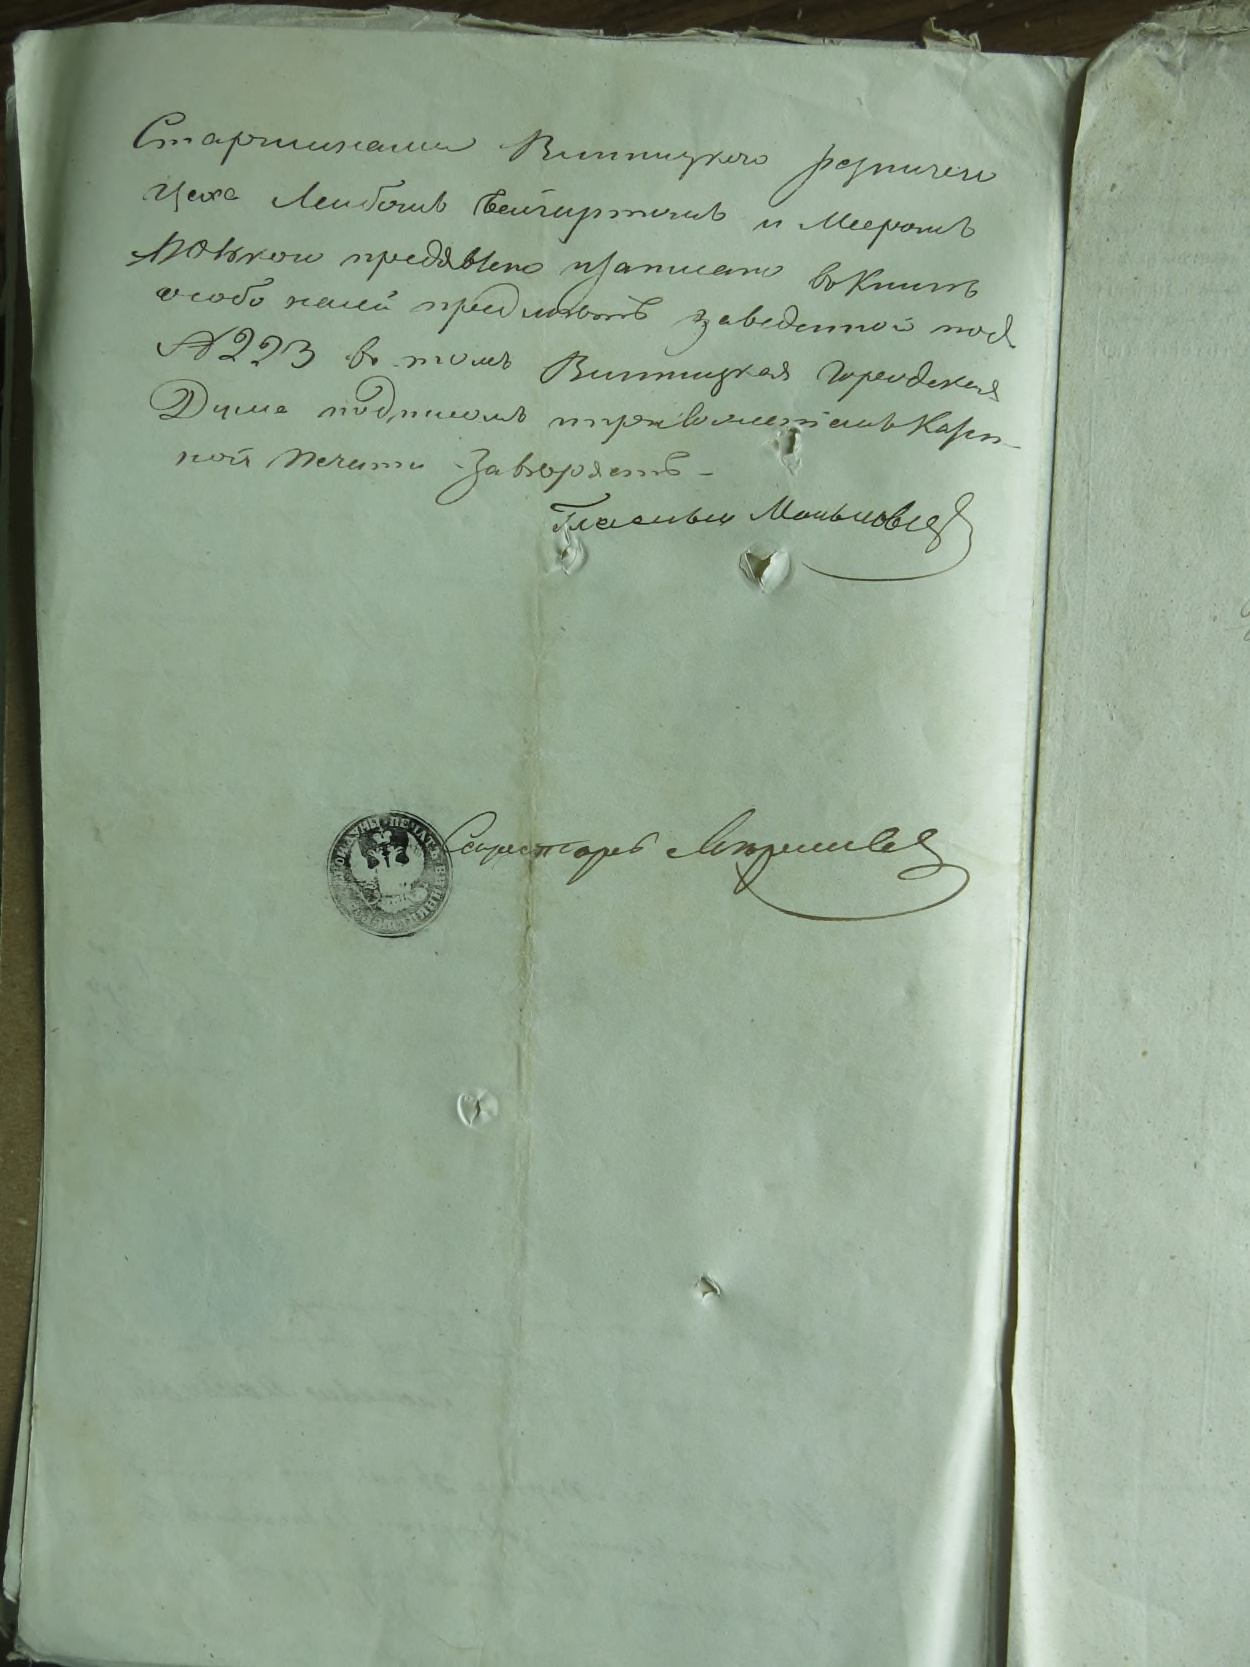 Старшинами Винницкого резничего
цеха Лейбомъ Вейнгортомъ и Мееромъ
предявлено и записано въ Книгѣ
особо на сей предметъ заведенной подъ
№ 223 въ томъ Винницкая Городская
Дума подписомъ и приложеніемъ Казен-
ной Печати Завѣряетъ
Гласный
Секретарь
ПЕЧАТЬ